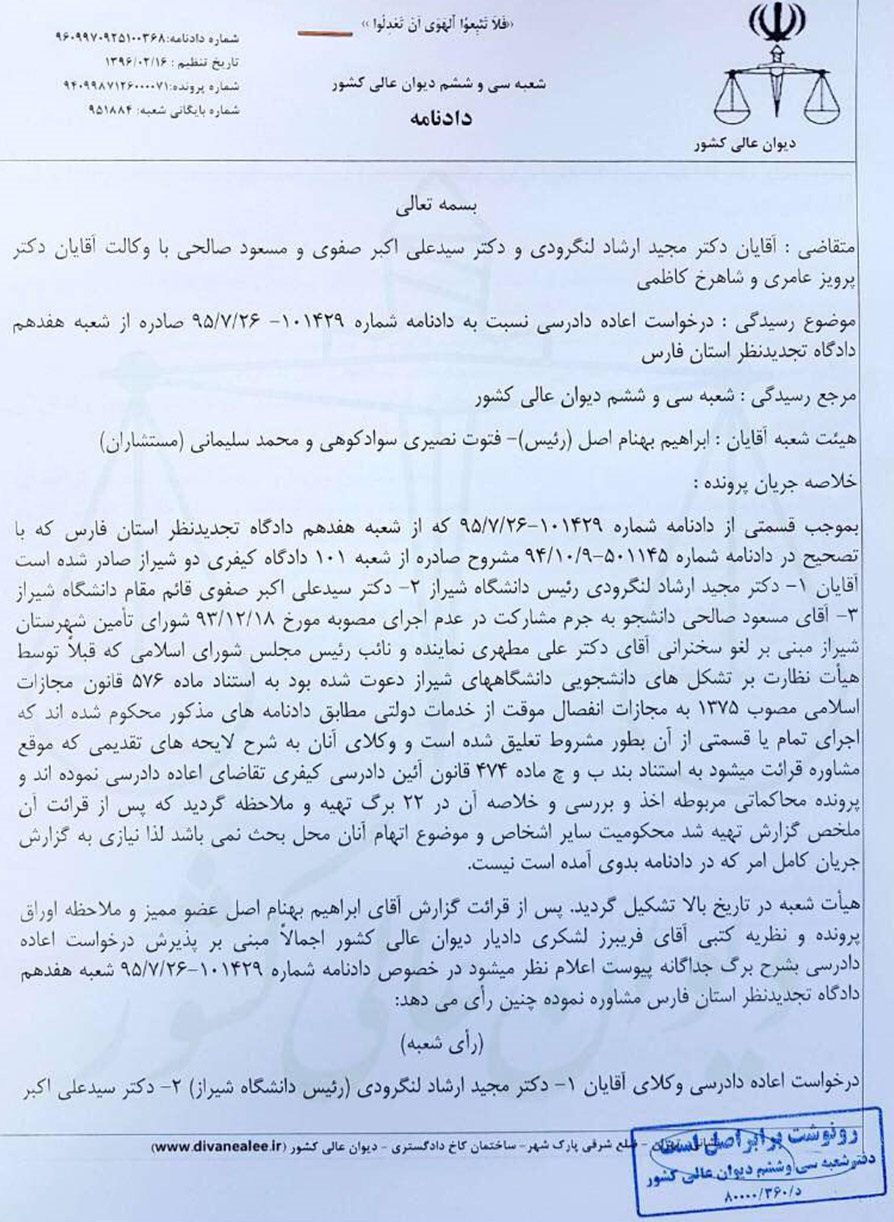 «فَلاَ تَتَّبِعوُا اَلهَوَی اَنْ تَعْدِلُوا»
شماره دادنامه:۹۶۰۹۹۷۰۹۲۵۱۰۰۳۶۸
تاریخ تنظیم : ۱۳۹۶/۰۲/۱۶
شماره پرونده:۹۴۰۹۹۸۷۱۲۶۰۰۰۰۷۱
شماره بایگانی شعبه: ۹۵۱۸۸۴
شعبه سی و ششم دیوان عالی کشور
دادنامه
دیوان عالی کشور
بسمه تعالی
متقاضی : آقایان دکتر مجید ارشاد لنگرودی و دکتر سیدعلی اکبر صفوی و مسعود صالحی با وکالت آقایان دکتر
پرویز عامری و شاهرخ کاظمی
موضوع رسیدگی : درخواست اعاده دادرسی نسبت به دادنامه شماره ۱۰۱۴۲۹- ۹۵/۷/۲۶ صادره از شعبه هفدهم
دادگاه تجدیدنظر استان فارس
مرجع رسیدگی : شعبه سی و ششم دیوان عالی کشور
هیئت شعبه آقایان : ابراهیم بهنام اصل (رئیس)- فتوت نصیری سوادکوهی و محمد سلیمانی (مستشاران)
خلاصه جریان پرونده :
بموجب قسمتی از دادنامه شماره ۱۰۱۴۲۹-۹۵/۷/۲۶ که از شعبه هفدهم دادگاه تجدیدنظر استان فارس که با
تصحیح در دادنامه شماره ۵۰۱۱۴۵-۹۴/۱۰/۹ مشروح صادره از شعبه ۱۰۱ دادگاه کیفری دو شیراز صادر شده است
آقایان ۱- دکتر مجید ارشاد لنگرودی رئیس دانشگاه شیراز ۲- دکتر سیدعلی اکبر صفوی قائم مقام دانشگاه شیراز
۳- آقای مسعود صالحی دانشجو به جرم مشارکت در عدم اجرای مصوبه مورخ ۹۳/۱۲/۱۸ شورای تأمین شهرستان
شیراز مبنی بر لغو سخنرانی آقای دکتر علی مطهری نماینده و نائب رئیس مجلس شورای اسلامی که قبلاً توسط
هیأت نظارت بر تشکل های دانشجویی دانشگاههای شیراز دعوت شده بود به استناد ماده ۵۷۶ قانون مجازات
اسلامی مصوب ۱۳۷۵ به مجازات انفصال موقت از خدمات دولتی مطابق دادنامه های مذکور محکوم شده اند که
اجرای تمام یا قسمتی از آن بطور مشروط تعلیق شده است و وکلای آنان به شرح لایحه های تقدیمی که موقع
مشاوره قرائت میشود به استناد بند ب و چ ماده ۴۷۴ قانون آئین دادرسی کیفری تقاضای اعاده دادرسی نموده اند و
پرونده محاکماتی مربوطه اخذ و بررسی و خلاصه آن در ۲۲ برگ تهیه و ملاحظه گردید که پس از قرائت آن
ملخص گزارش تهیه شد محکومیت سایر اشخاص و موضوع اتهام آنان محل بحث نمی باشد لذا نیازی به گزارش
جریان کامل امر که در دادنامه بدوی آمده است نیست.
هیأت شعبه در تاریخ بالا تشکیل گردید. پس از قرائت گزارش آقای ابراهیم بهنام اصل عضو ممیز و ملاحظه اوراق
پرونده و نظریه کتبی آقای فریبرز لشکری دادیار دیوان عالی کشور اجمالاً مبنی بر پذیرش درخواست اعاده
دادرسی بشرح برگ جداگانه پیوست اعلام نظر میشود در خصوص دادنامه شماره ۱۰۱۴۲۹-۹۵/۷/۲۶ شعبه هفدهم
دادگاه تجدیدنظر استان فارس مشاوره نموده چنین رأی می دهد:
(رأی شعبه)
درخواست اعاده دادرسی وکلای آقایان ۱- دکتر مجید ارشاد لنگرودی (رئیس دانشگاه شیراز) ۲- دکتر سیدعلی اکبر
ضلع شرقی پارک شهر- ساختمان کاخ دادگستری - دیوان عالی کشور (www.divanealee.ir)
رونوشت برابر اصل است
دفتر شعبه سی و ششم دیوان عالی کشور
۸۰۰۰۰/۳۶۰/د